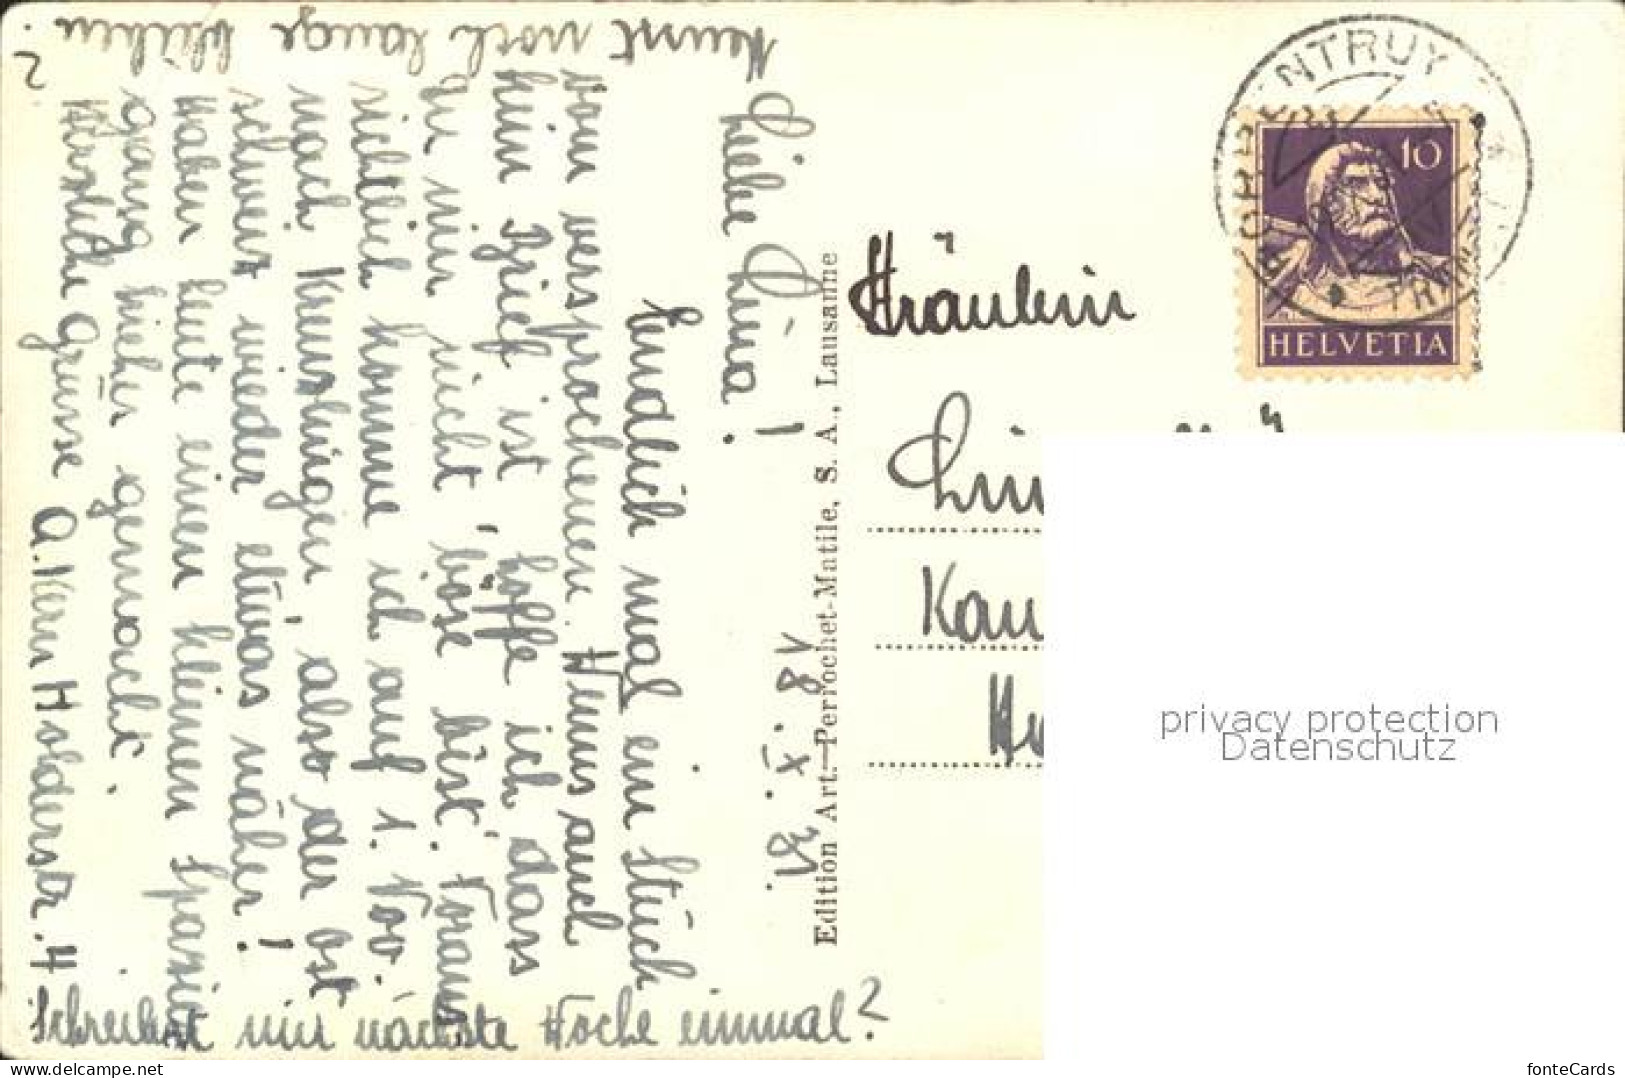 Liebe Lina!
18. X. 31.
Endlich mal ein Stück
vom versprochenen. Wenns auch
kein Brief ist, hoffe ich dass
Du mir nicht böse bist. Voraus-
sichtlich komme ich auf 1. Nov.
nach Kreuzlingen, also der Ost-
schweiz wieder etwas näher!
Haben heute einen kleinen Spazier-
gang hieher gemacht.
Herzliche Grüsse A. Kern Holderstr. 4
Schreibst mir nächste Woche einmal?
kannst noch lange
?
Edition Art. Perrochet-Matile, S. A., Lausanne
Fräulein
PORRENTRUY
10
HELVETIA
privacy protection
Datenschutz
fonteCards